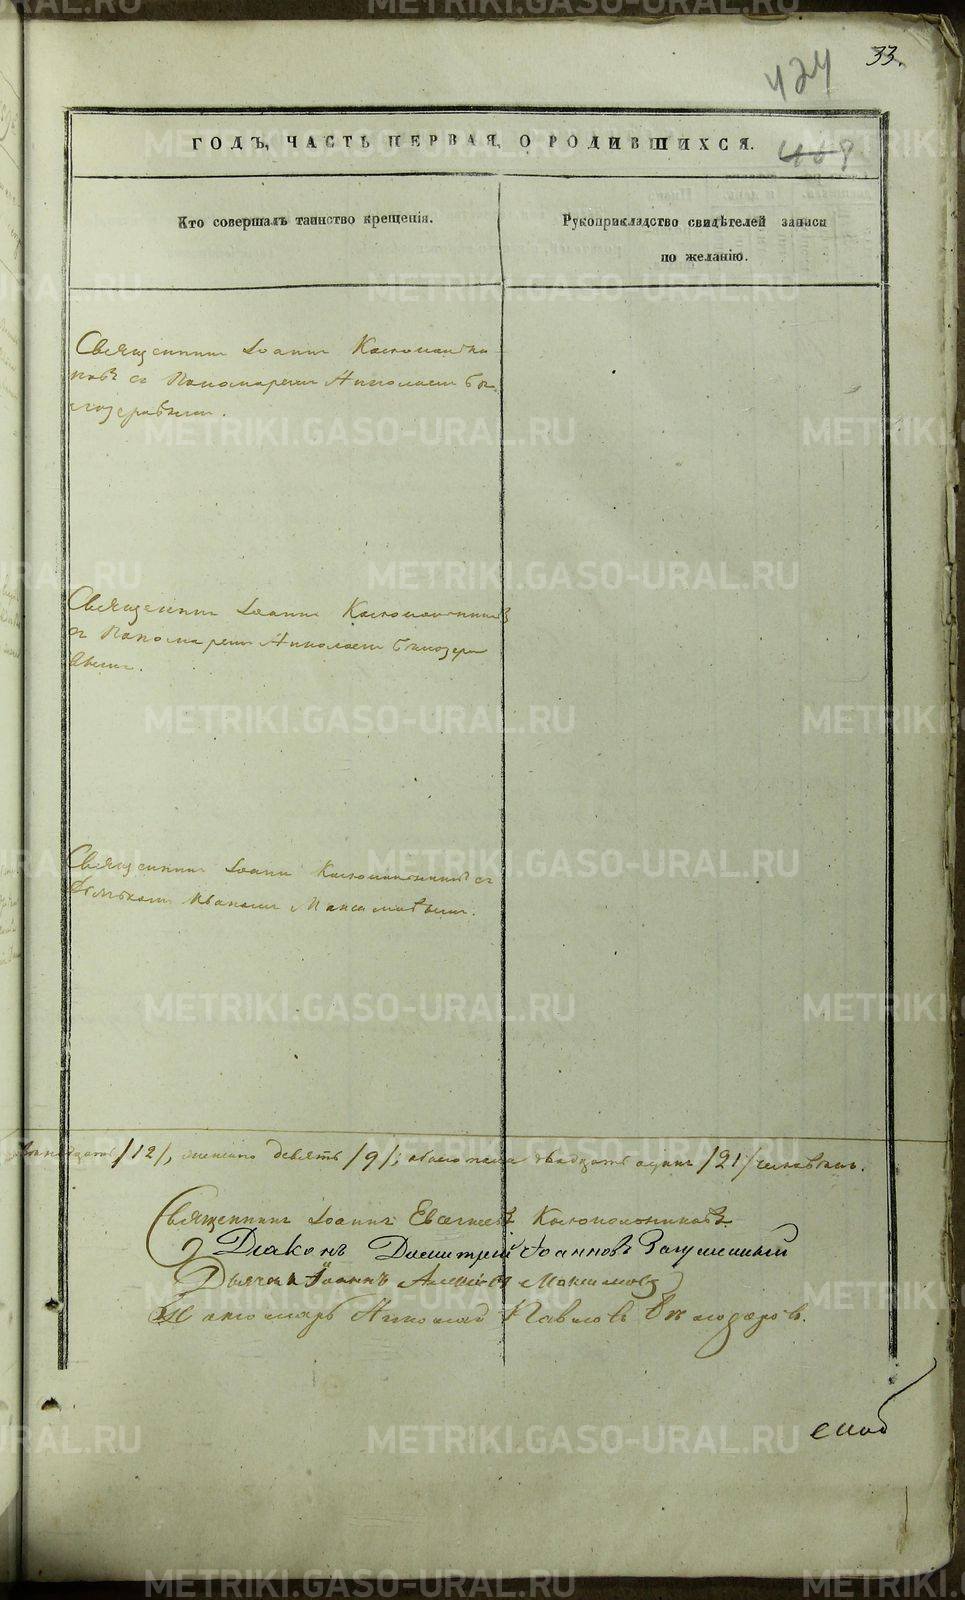 33.
424
408
ГОДЪ, ЧАСТЬ ПЕРВАЯ, О РОДИВШИХСЯ.
Кто совершалъ таинство крещенія.
Рукоприкладство свидѣтелей записи
по желанію.
Священникъ Іоаннъ
съ Пономаремъ Николаемъ Бѣ
лозеровымъ.
Священникъ Іоаннъ
съ Пономаремъ Николаемъ Бѣлозеро
вымъ.
Священникъ Іоаннъ съ
Дьячкомъ Иваномъ Максимовымъ.
/12/, женска девять /9/; обоего пола двадцать одинъ /21/ человѣкъ.
Священникъ Іоаннъ Евгеніевъ Колокольниковъ
Діаконъ Димитрій Іоанновъ
Дьячокъ Іоаннъ Максимовъ
Пономарь Николай Павловъ Бѣлозеровъ.
METRIKI.GASO-URAL.RU